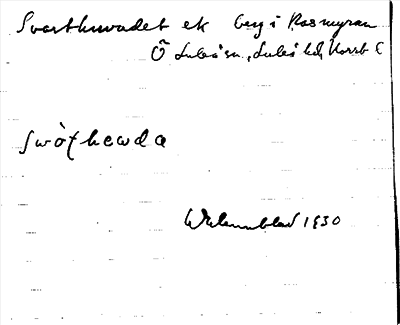 Svarthuvudet ek berg i Rosmyran
Ö Luleå sn, Luleå kd, Norrb l
swòṭhewda
Wiklundblad 1930